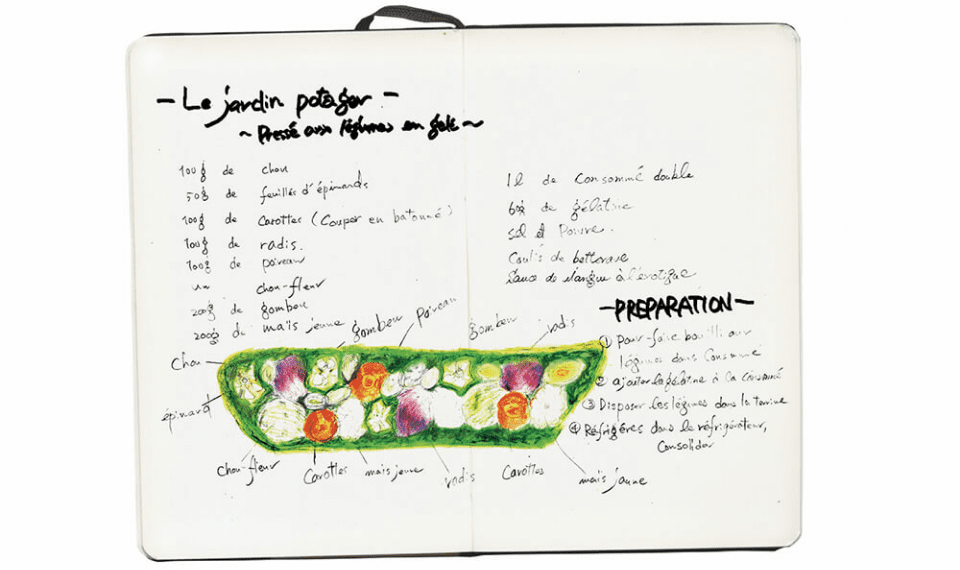 - Le jardin potager -
~ Pressé aux légumes en gelé ~
100g de chou
50g de feuilles d'épinards
100g de Carottes (Couper en batonné)
100g de radis.
100g de poireau
un chou-fleur
200g de gombou
200g de maïs jeune
1l de Consommé double
60g de gélatine
sel et Poivre.
Coulis de betterave
Sauce de mangue à l'éxotique
-PREPARATION-
① Pour-faire bouilli aux
légumes dans Consommé
② ajouter la gélatine à la consommé
③ Disposer les légumes dans la terrine
④ Réfrigérés dans le réfrigérateur,
Consolider
gombou
poireau
gombou
radis
Chou
épinard
Chou-fleur
Carottes
maïs jeune
radis
Carottes
maïs jaune